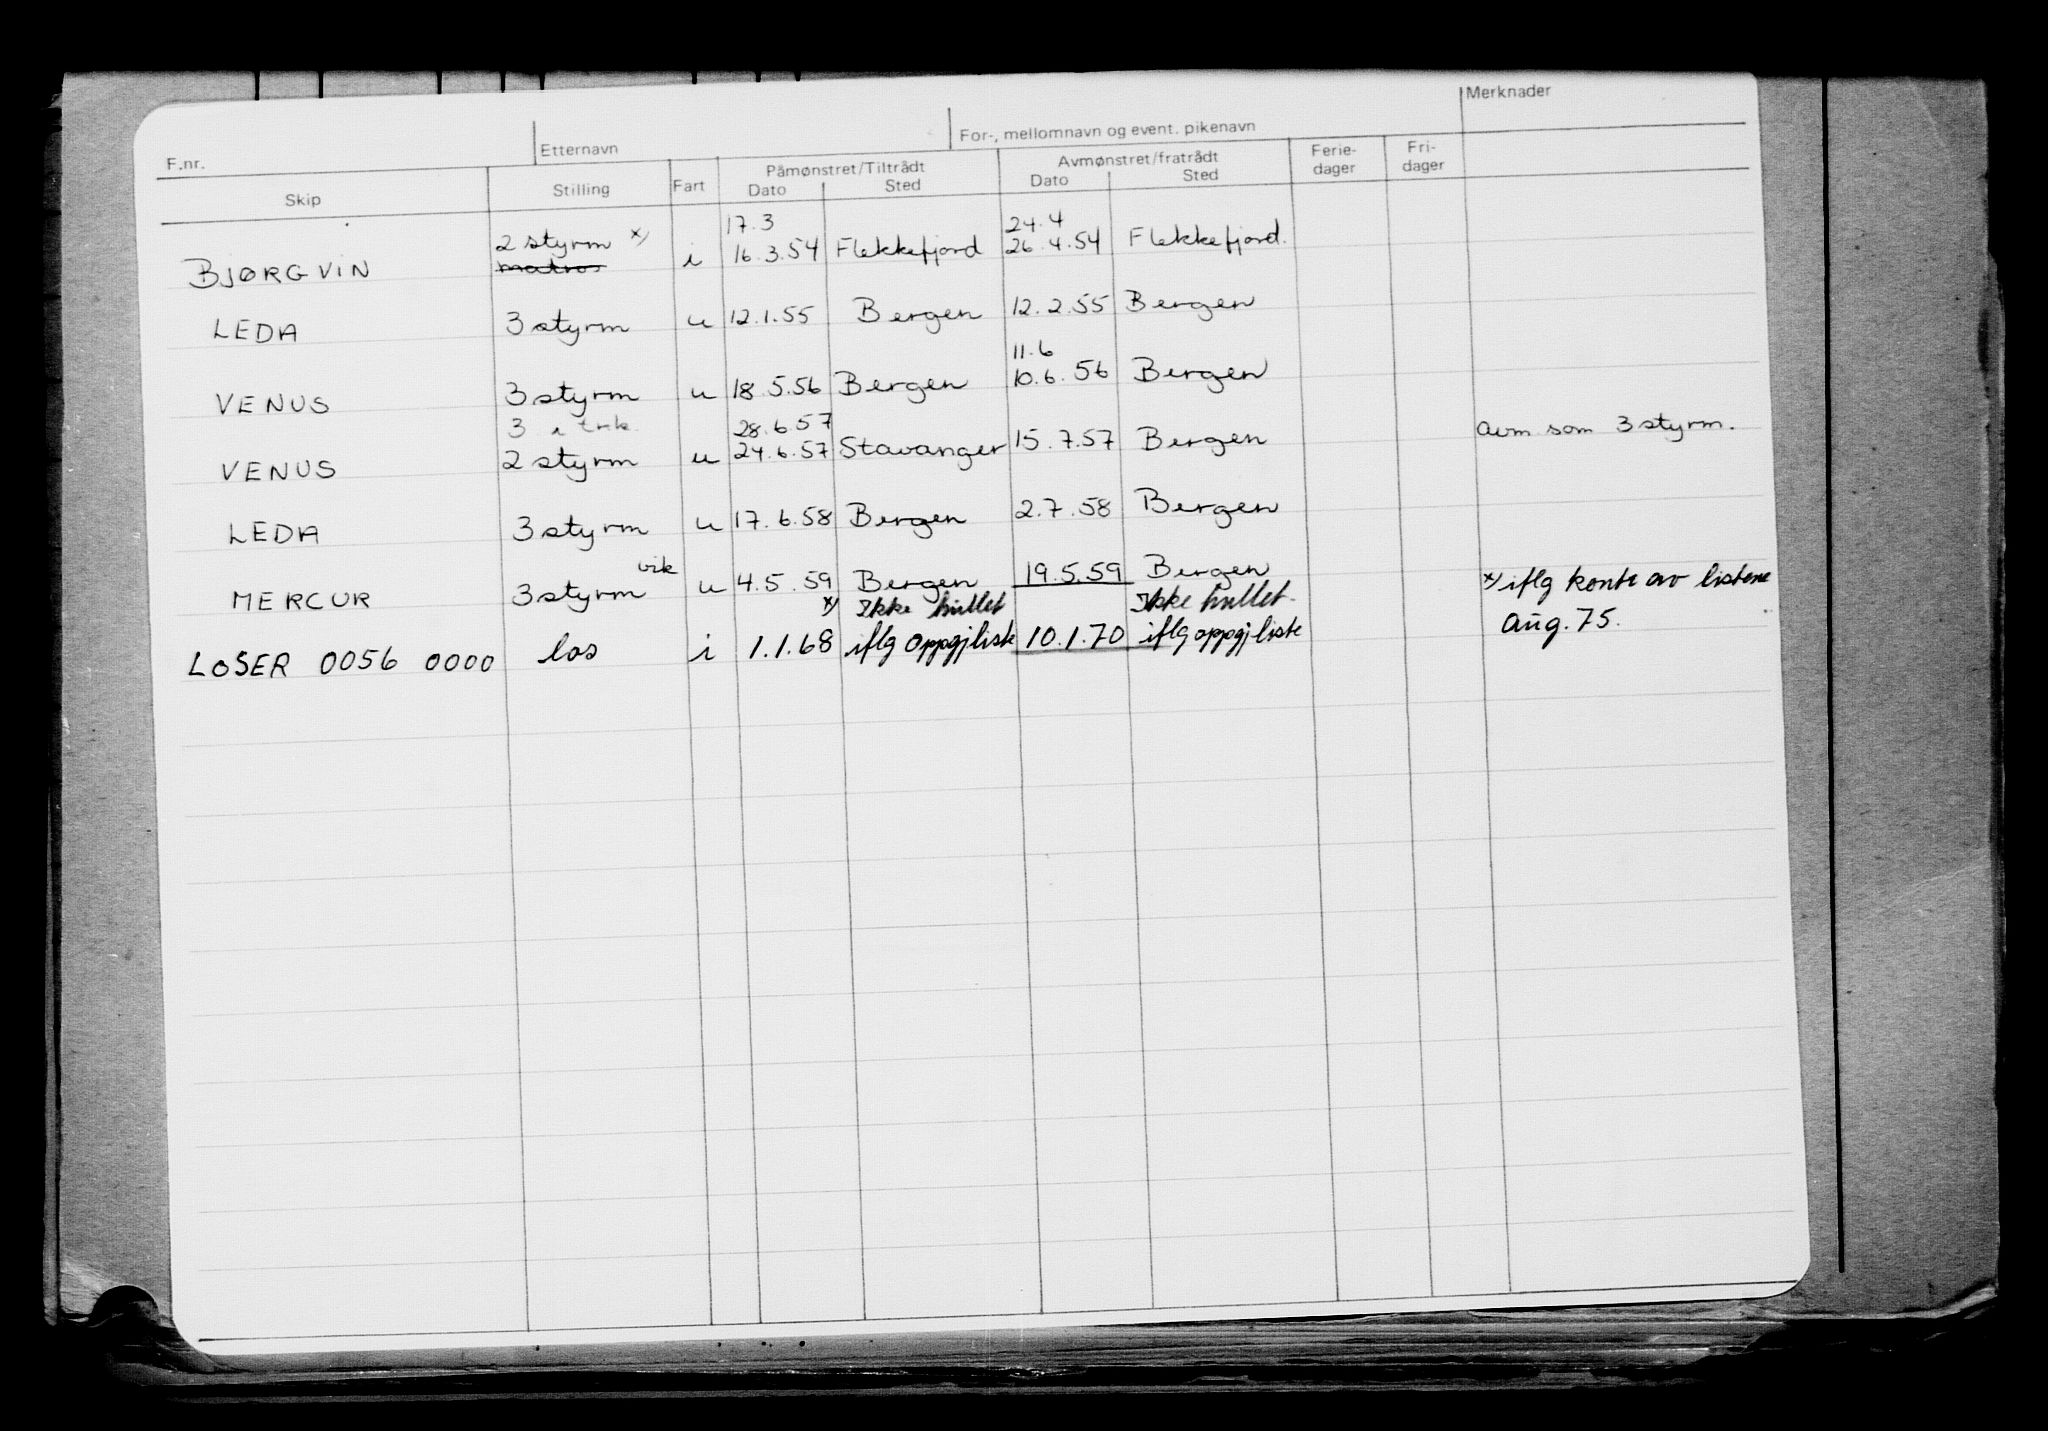 F.nr. Etternavn For-, mellomnavn og event. pikenavn Merknader
Skip Stilling Fart Påmønstret/Tiltrådt Dato Sted Avmønstret/fratrådt Dato Sted Ferie-dager Fri-dager
17.3 24.4
BJØRGVIN 2 styrm x) matros i 16.3.54 Flekkefjord 26.4.54 Flekkefjord.
LEDA 3 styrm u 12.1.55 Bergen 12.2.55 Bergen
11.6
VENUS 3 styrm u 18.5.56 Bergen 10.6.56 Bergen
3 28.6.57
VENUS 2 styrm u 24.6.57 Stavanger 15.7.57 Bergen avm som 3 styrm.
LEDA 3 styrm u 17.6.58 Bergen 2.7.58 Bergen
MERCUR 3 styrm vik u 4.5.59 Bergen 19.5.59 Bergen
x) Ikke hullet Ikke hullet. x) iflg kontr av listene
LOSER 0056 0000 los i 1.1.68 iflg oppgjliste 10.1.70 iflg oppgjliste aug. 75.